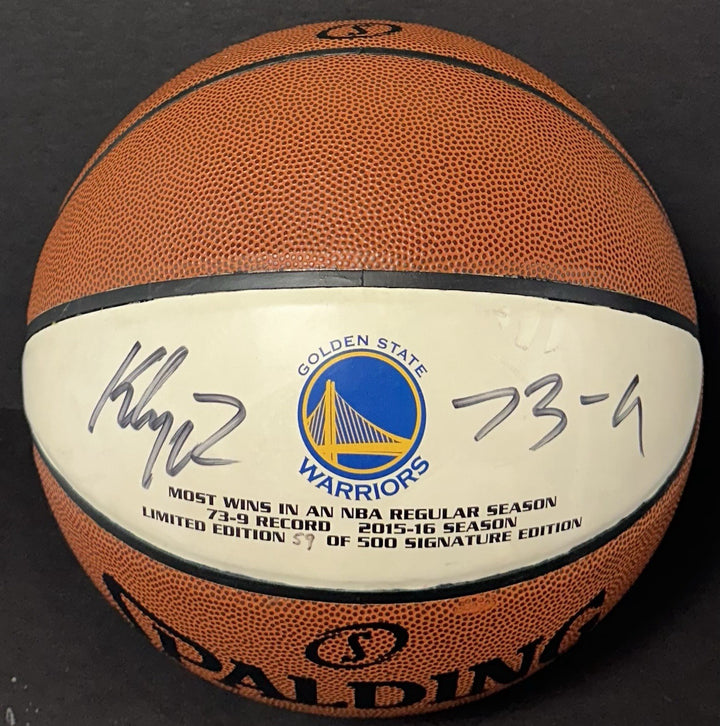 S
GOLDEN STATE
WARRIORS
73-9
MOST WINS IN AN NBA REGULAR SEASON
73-9 RECORD 2015-16 SEASON
LIMITED EDITION 59 OF 500 SIGNATURE EDITION
S
SPALDING